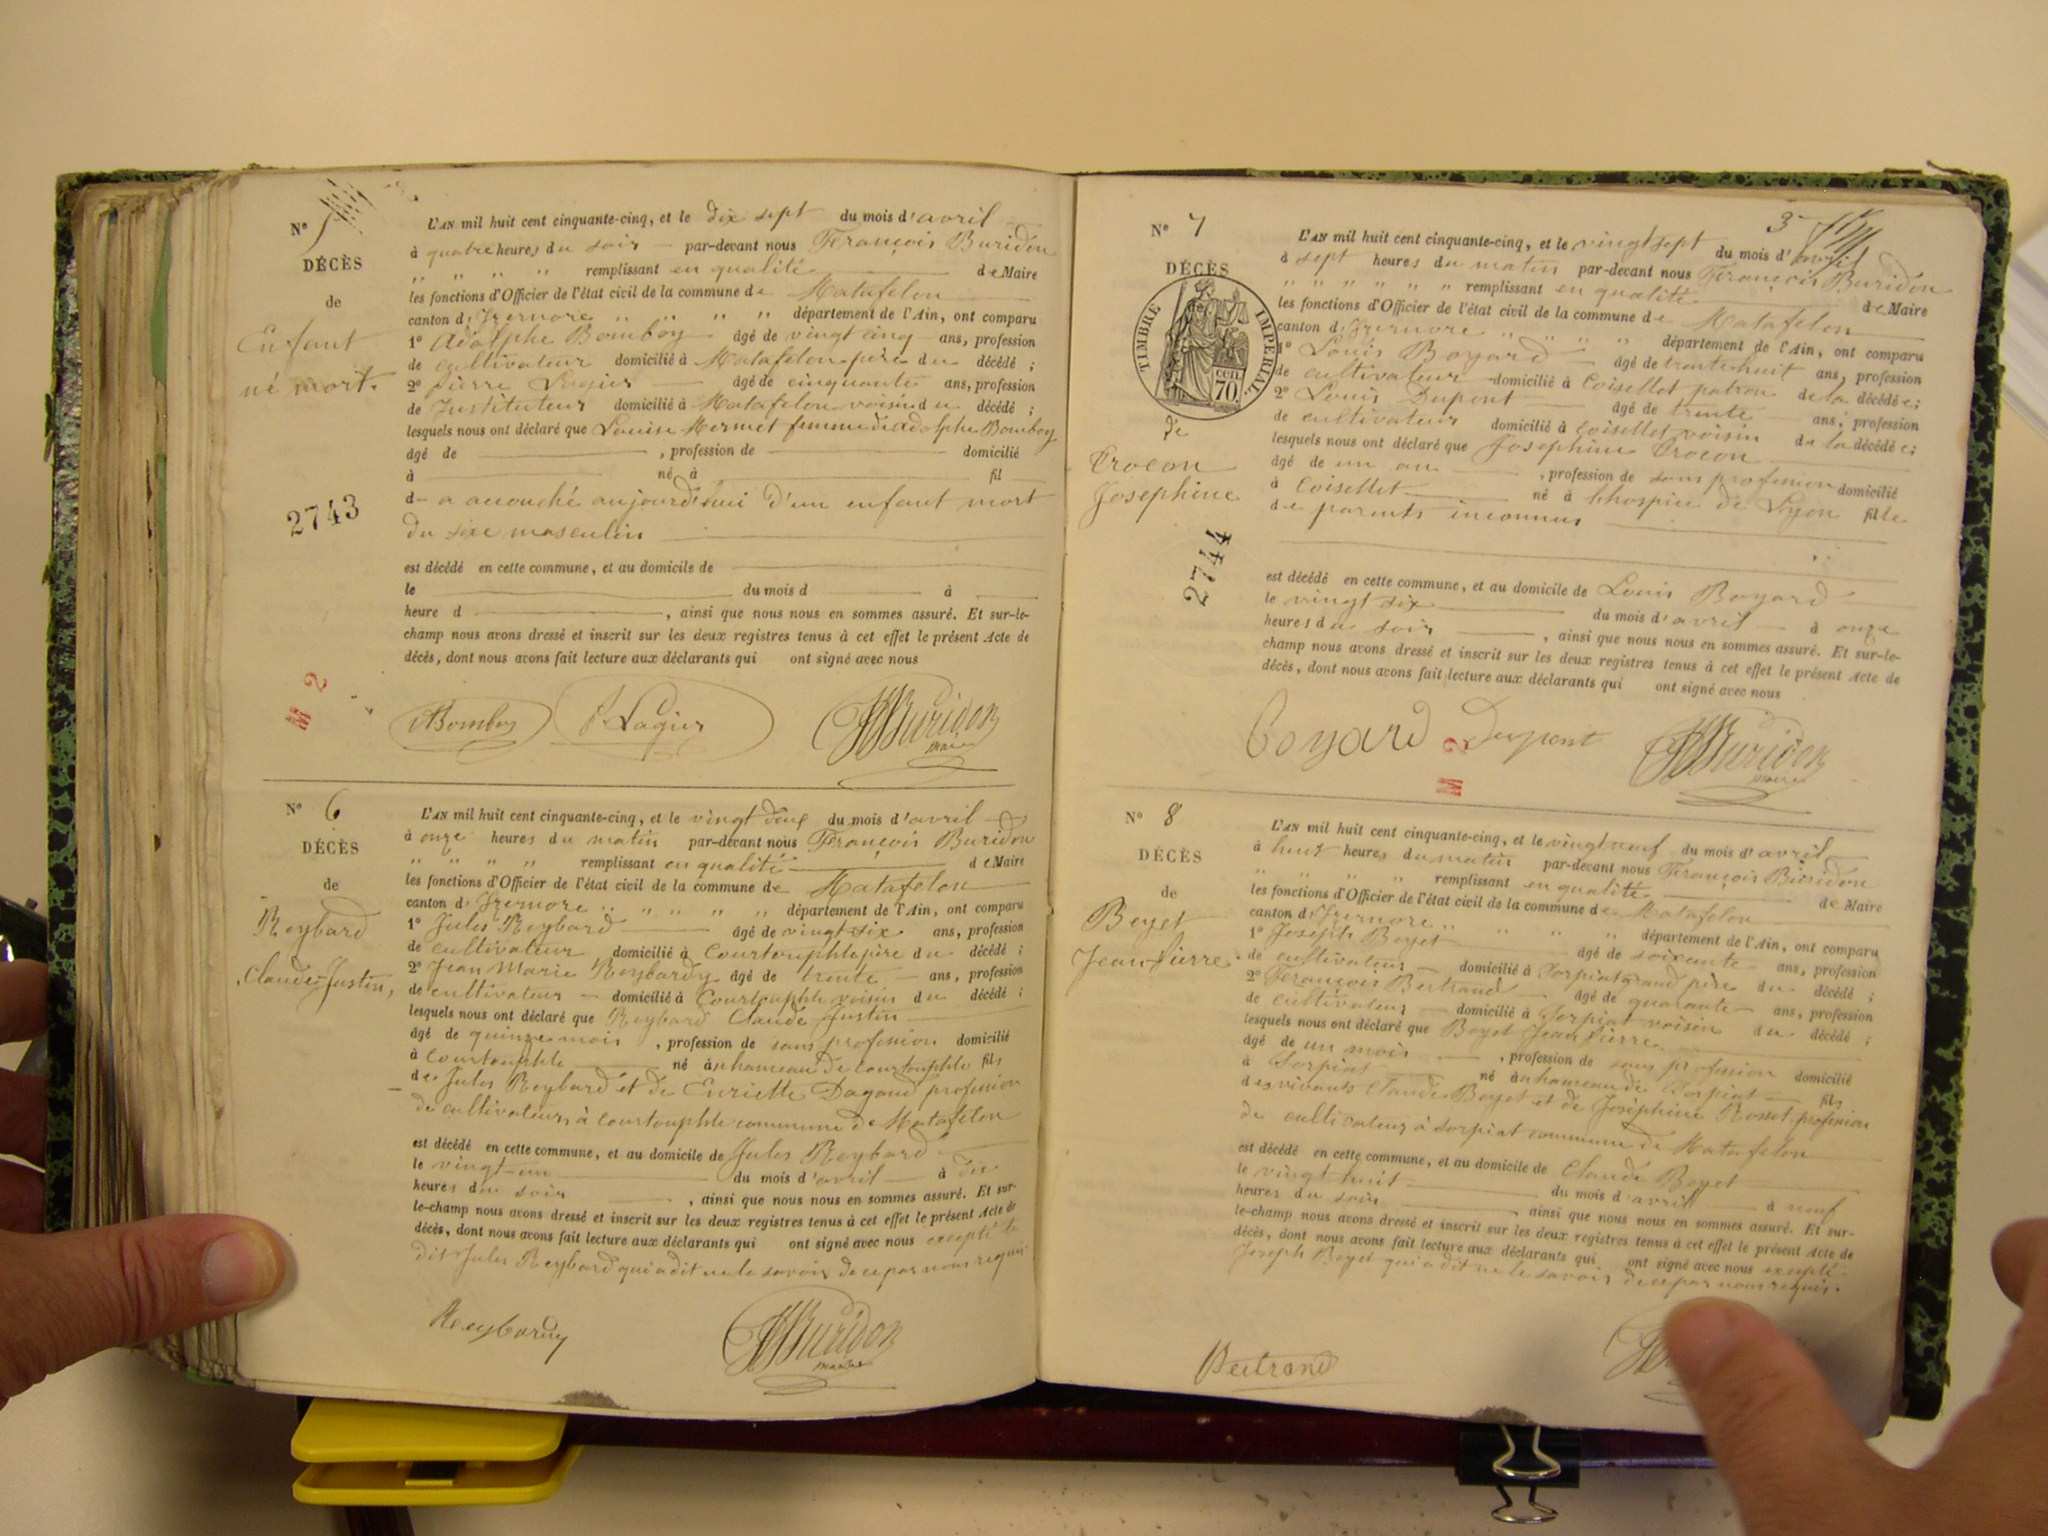 N° 5
DÉCÈS
de
Enfant
né mort.
2743
M 2
L'AN mil huit cent cinquante-cinq, et le dix sept du mois d'avril
à quatre heures du soir par-devant nous François Buridon
" " " " remplissant en qualité de Maire
les fonctions d'Officier de l'état civil de la commune de Matafelon
canton d'Izernore " " " " département de l'Ain, ont comparu
1° Adolphe Bomboy âgé de vingt cinq ans, profession
de cultivateur domicilié à Matafelon père du décédé ;
2° pierre Lagier âgé de cinquante ans, profession
de Instituteur domicilié à Matafelon voisin du décédé ;
lesquels nous ont déclaré que Louise Mermet femme di adolphe Bomboy
âgé de , profession de domicilié
à né à fil
d a accouché aujourd'hui d'un enfant mort
du sixe masculin
est décédé en cette commune, et au domicile de
le du mois d à
heure d , ainsi que nous nous en sommes assuré. Et sur-le-
champ nous avons dressé et inscrit sur les deux registres tenus à cet effet le présent Acte de
décès, dont nous avons fait lecture aux déclarants qui ont signé avec nous
ABomboy P. Lagier Buridon
maire
N° 6
DÉCÈS
de
Reybard
Claude-Justin,
L'AN mil huit cent cinquante-cinq, et le vingt deux du mois d'avril
à onze heures du matin par-devant nous François Buridon
" " " " remplissant en qualité de Maire
les fonctions d'Officier de l'état civil de la commune de Matafelon
canton d'Izernore " " " " " département de l'Ain, ont comparu
1° Jules Reybard âgé de vingt six ans, profession
de cultivateur domicilié à Courtouphle père du décédé ;
2° Jean Marie Reybardy âgé de trente ans, profession
de cultivateur domicilié à Courtouphle voisin du décédé ;
lesquels nous ont déclaré que Reybard Claude Justin
âgé de quinze mois , profession de sans profession domicilié
à Courtouphle né à u hameau de courtouphle fils
de Jules Reybard et de Enriette Dagaud profession
de cultivateurs à courtouphle commune de Matafelon
est décédé en cette commune, et au domicile de Jules Reybard
le vingt-un du mois d'avril à dix
heures du soir , ainsi que nous nous en sommes assuré. Et sur-
le-champ nous avons dressé et inscrit sur les deux registres tenus à cet effet le présent Acte de
décès, dont nous avons fait lecture aux déclarants qui ont signé avec nous excepté le
dit Jules Reybard qui a dit ne le savoir de ce par nous requis
Reybardy Buridon
maire
3
N° 7
DÉCÈS
TIMBRE IMPERIAL
70 cen.
de
Crocon
Josephine
2744
L'AN mil huit cent cinquante-cinq, et le vingt sept du mois d'avril
à sept heures du matin par-devant nous François Buridon
" " " " " " remplissant en qualité de Maire
les fonctions d'Officier de l'état civil de la commune de Matafelon
canton d'Izernore " " " " département de l'Ain, ont comparu
1° Louis Boyard âgé de trente huit ans, profession
de cultivateur domicilié à Coisellet patron de la décédée ;
2° Louis Dupont âgé de trente ans, profession
de cultivateur domicilié à Coisellet voisin de la décédée ;
lesquels nous ont déclaré que Josephine Crocon
âgé de un an , profession de sans profession domicilié
à Coisellet né à l'hospice de Lyon fille
de parents inconnus
est décédé en cette commune, et au domicile de Louis Boyard
le vingt six du mois d'avril à onze
heures du soir , ainsi que nous nous en sommes assuré. Et sur-le-
champ nous avons dressé et inscrit sur les deux registres tenus à cet effet le présent Acte de
décès, dont nous avons fait lecture aux déclarants qui ont signé avec nous
Boyard Dupont Buridon
maire
M 2
N° 8
DÉCÈS
de
Boyet
Jean Pierre
L'AN mil huit cent cinquante-cinq, et le vingt neuf du mois d'avril
à huit heures du matin par-devant nous François Buridon
" " " " remplissant en qualité de Maire
les fonctions d'Officier de l'état civil de la commune de Matafelon
canton d'Izernore " " " " " département de l'Ain, ont comparu
1° Joseph Boyet âgé de soixante ans, profession
de cultivateur domicilié à Sorpiat grand père du décédé ;
2° François Bertrand âgé de quarante ans, profession
de cultivateur domicilié à Sorpiat voisin du décédé ;
lesquels nous ont déclaré que Boyet Jean Pierre
âgé de un mois , profession de sans profession domicilié
à Sorpiat né à u hameau de Sorpiat fils
des vivants Claude Boyet et de Josephine Rosset profession
de cultivateurs à sorpiat commune de Matafelon
est décédé en cette commune, et au domicile de Claude Boyet
le vingt huit du mois d'avril à neuf
heures du soir , ainsi que nous nous en sommes assuré. Et sur-
le-champ nous avons dressé et inscrit sur les deux registres tenus à cet effet le présent Acte de
décès, dont nous avons fait lecture aux déclarants qui ont signé avec nous excepté
Joseph Boyet qui a dit ne le savoir de ce par nous requis.
Bertrand